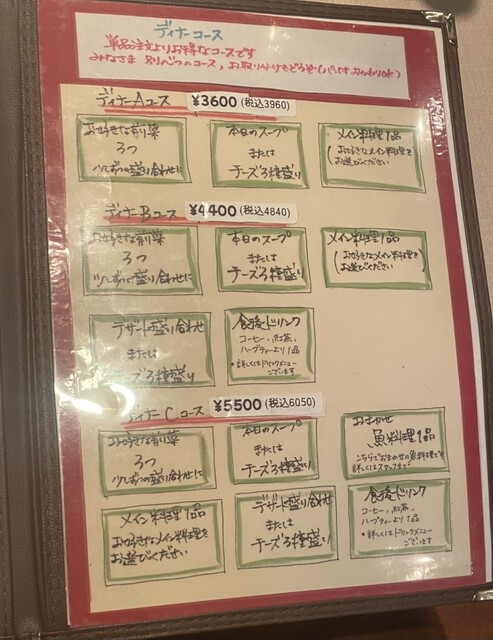 ディナーコース
単品注文よりお得なコースです
みなさま 別べつのコース、お取り分けもどうぞ!(パンはおかわりok)
ディナーAコース ¥3600(税込3960)
お好きな前菜
3つ
少しずつの盛り合わせに
本日のスープ
または
チーズ3種盛り
メイン料理1品
(お好きなメイン料理を
お選びください)
ディナーBコース ¥4400(税込4840)
お好きな前菜
3つ
少しずつの盛り合わせに
本日のスープ
または
チーズ3種盛り
メイン料理1品
(お好きなメイン料理を
お選びください)
デザート盛り合わせ
または
チーズ3種盛り
食後ドリンク
コーヒー、紅茶、
ハーブティーより1品
・詳しくはドリンクメニュー
ございます
ディナーCコース ¥5500(税込6050)
お好きな前菜
3つ
少しずつの盛り合わせに
本日のスープ
または
チーズ3種盛り
おまかせ
魚料理1品
こちらでおまかせの魚料理です
詳しくはスタッフまで
メイン料理1品
お好きなメイン料理を
お選びください
デザート盛り合わせ
または
チーズ3種盛り
食後ドリンク
コーヒー、紅茶、
ハーブティーより1品
・詳しくはドリンクメニュー
ございます